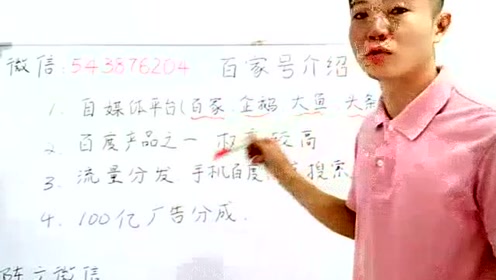 微信:543876204 百家号介绍
1. 自媒体平台(百家.企鹅 大鱼.头条
2. 百度产品之一 较高
3. 流量分发 手机百度 搜索
4. 100亿广告分成.
微信